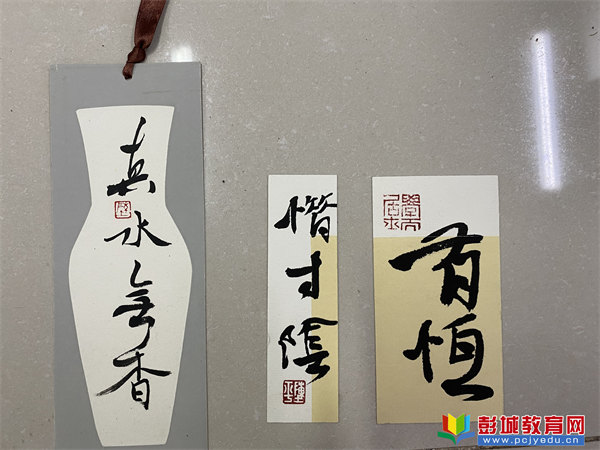 真水無香
惜寸陰
有恒
彭城教育网
www.pcjyedu.cn